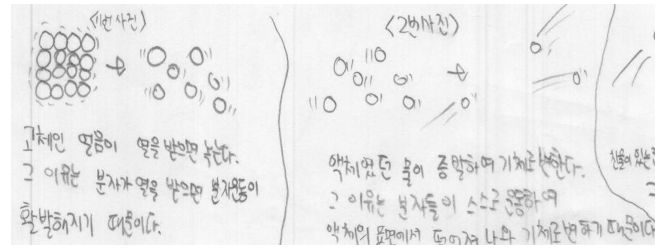 <1번 사진>
고체인 얼음이 열을 받으면 녹는다.
그 이유는 분자가 열을 받으면 분자운동이
활발해지기 때문이다.
<2번 사진>
액체였던 물이 증발하여 기체로 변한다.
그 이유는 분자들이 스스로 운동하여
액체의 표면에서 떨어져 나와 기체로 변하기 때문이다